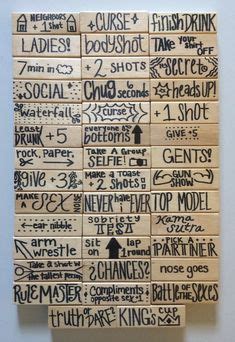 NEIGHBORS + 1 SHOT
CURSE
finish DRINK
LADIES!
bodyshot
Take your SHIRT OFF
7 min in
+ 2 SHOTS
secret
SOCIAL
Chug seconds
heads UP!
Waterfall
curse
+1 SHOT
Least DRUNK +5
everyone's bottoms
GIVE +5
rock, Paper,
Take A Group SELFIE!
GENTS!
GIVE +3
Make a Toast +2 Shots
GUN SHOW
MAKE A SEX NOISE
NEVER HAVE I EVER
TOP MODEL
ear nibble
sobriety TEST
Kama Sutra
arm wrestle
sit on lap 1 round
PICK A PARTNER
Take a shot w the tallest person
¿CHANCES?
nose goes
RULE MASTER
Compliments opposite sex +1
Battle of the SEXES
truth or DARE?
KING's CUP